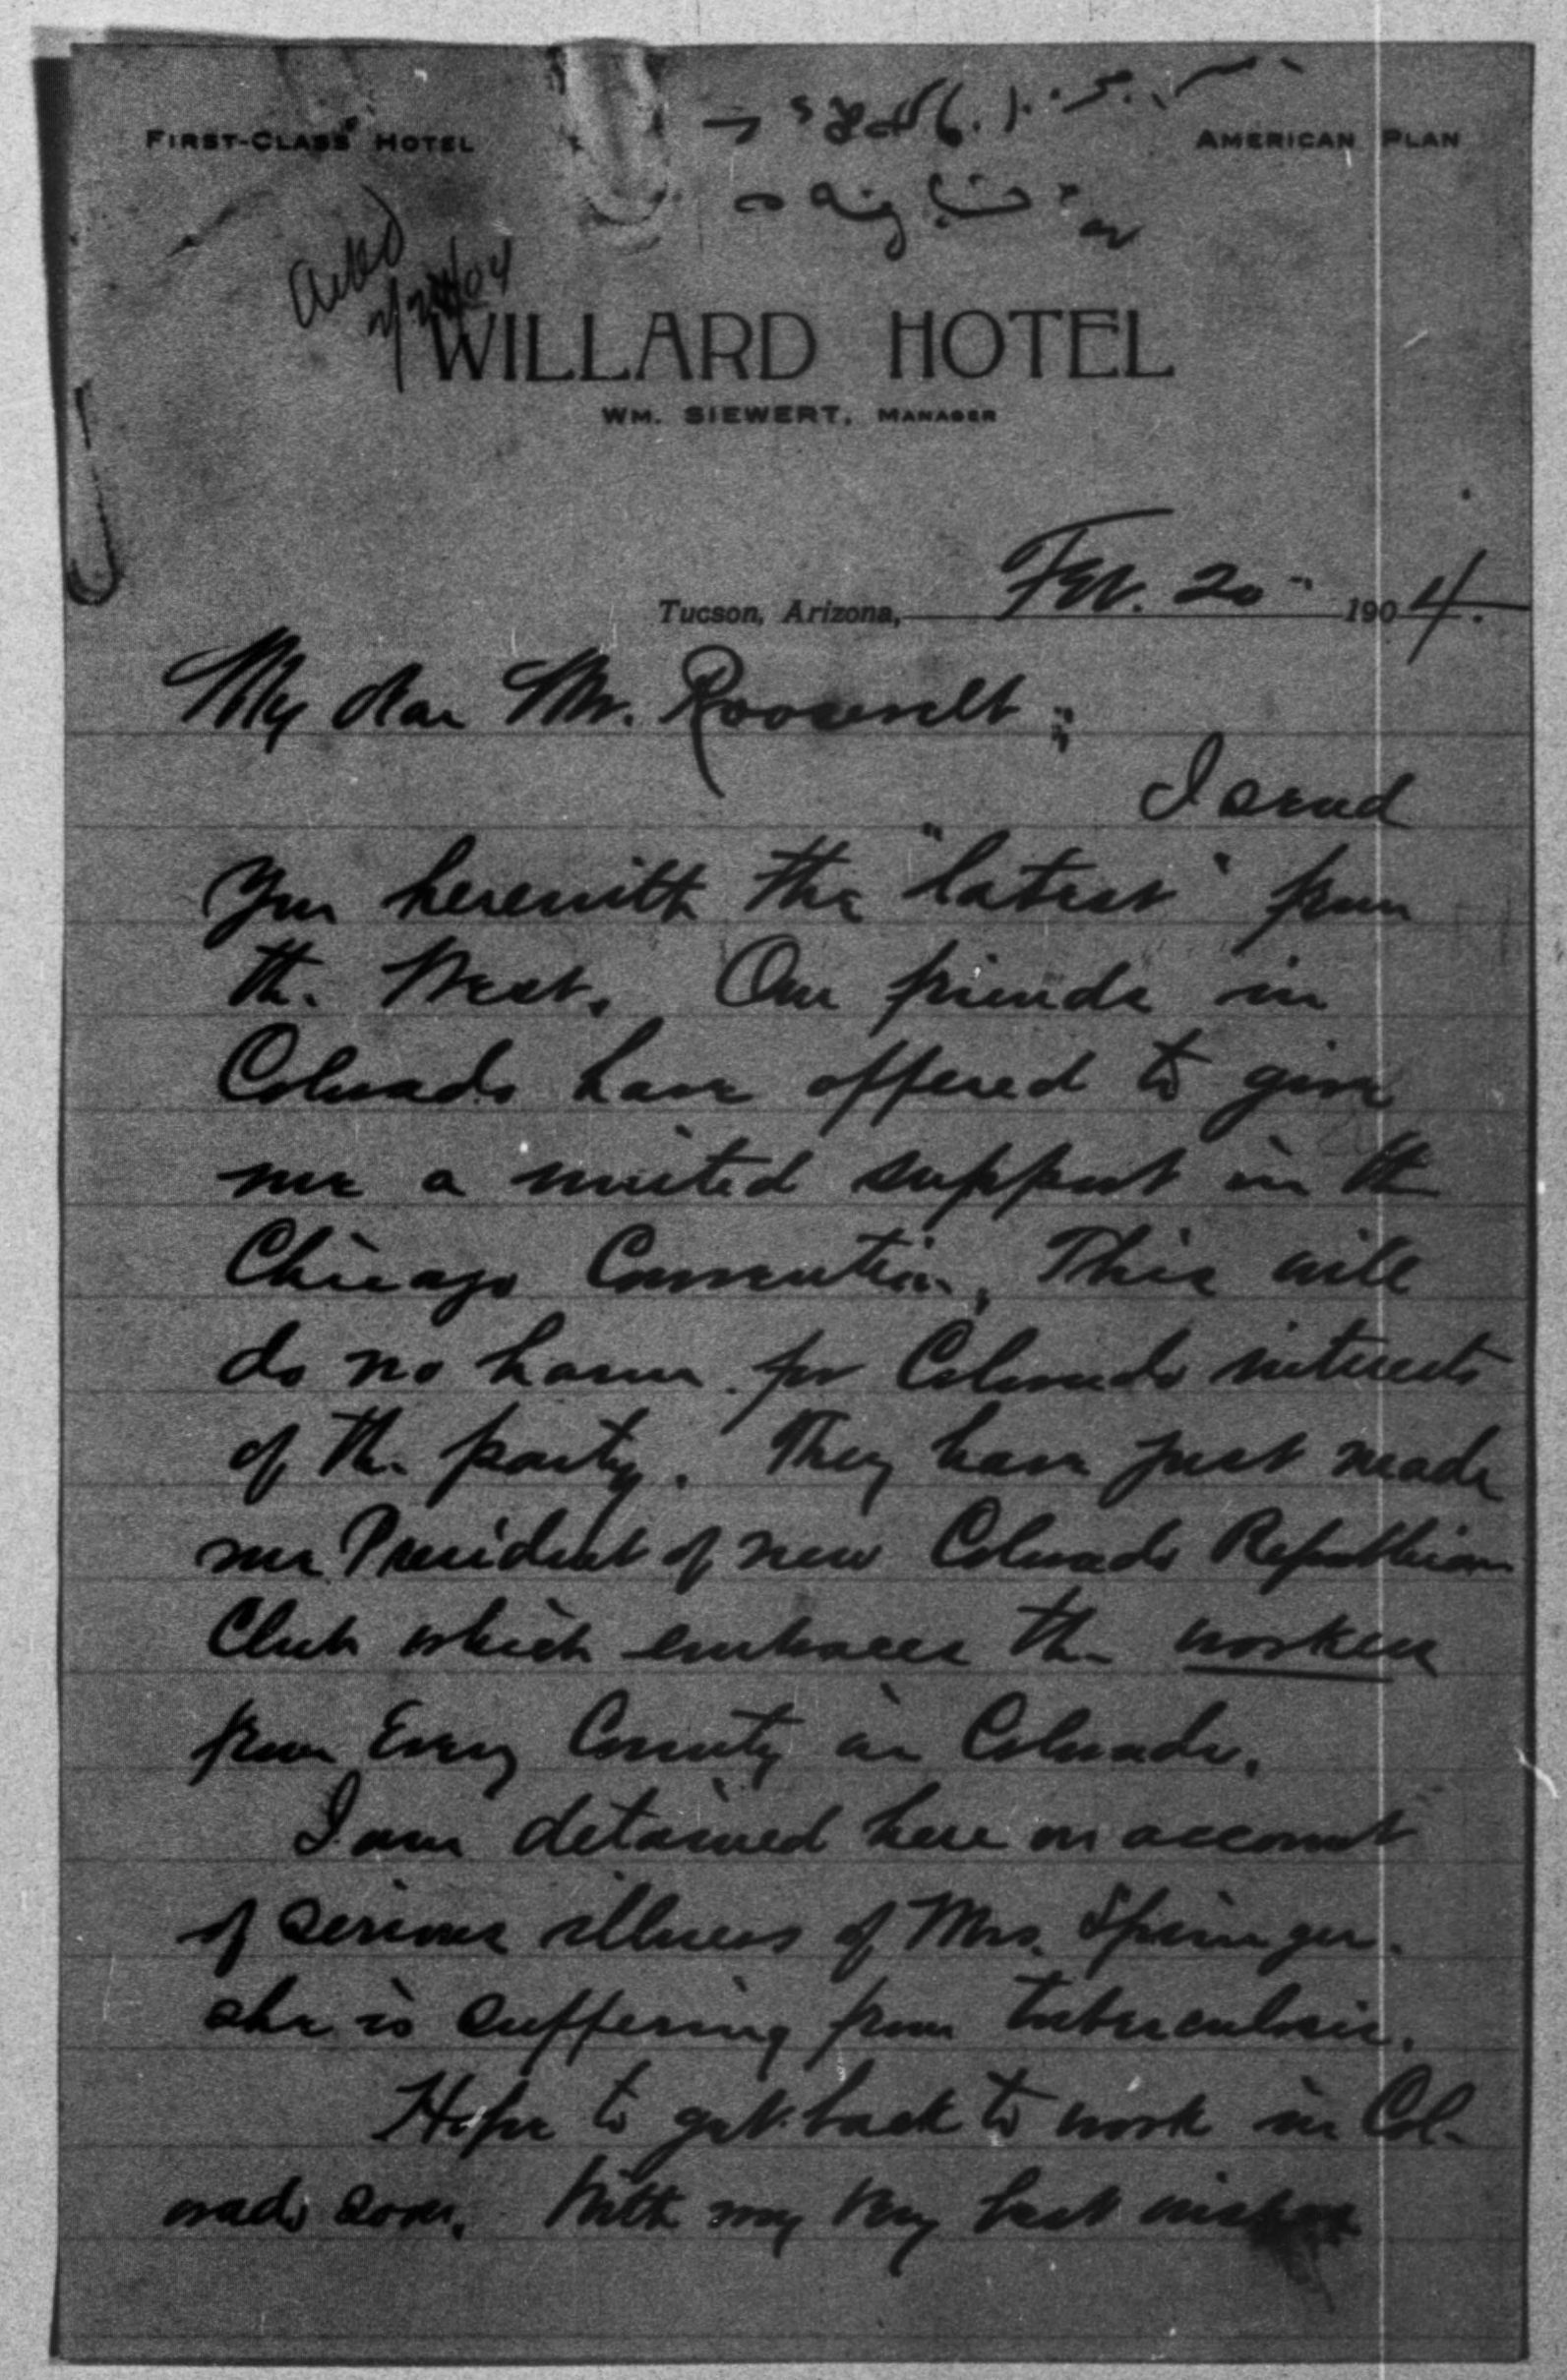 FIRST-CLASS HOTEL
AMERICAN PLAN
WILLARD HOTEL
WM. SIEWERT, MANAGER
Tucson, Arizona, Feb. 20 1904.
My dear Mr. Roosevelt:
I send
you herewith the "latest" from
the West. Our friends in
Colorado have offered to give
me a united support in the
Chicago Convention. This will
do no harm for Colorado interests
of the party. They have just made
me President of new Colorado Republican
Club which embraces the workers
from Every County in Colorado.
I am detained here on account
of serious illness of Mrs. Springer.
she is suffering from tuberculosis.
Hope to get back to work in Col-
orado soon. With my very best wishes